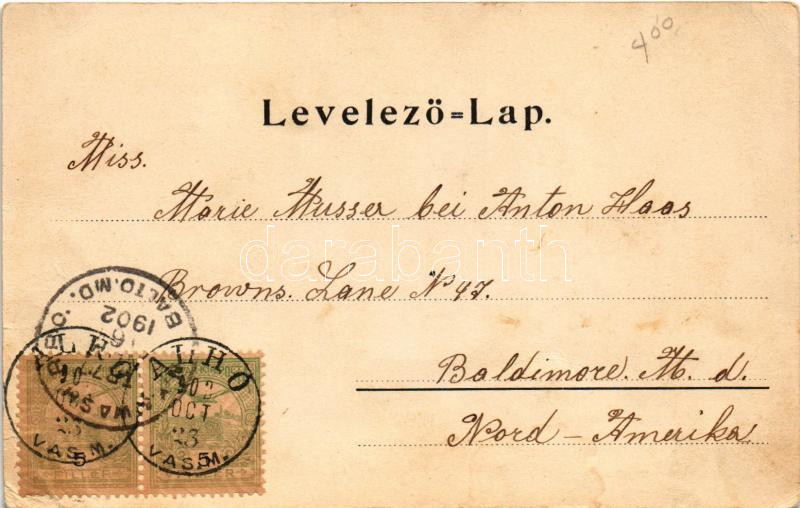 400
Levelező=Lap.
Miss.
Marie Musser bei Anton Haas
darabanth
Browns. Lane N 47.
Baldimore. M. d.
Nord-Amerika
BALTO. MD.
1902
902
OCT
23
VAS.M.
5
VAS.M.
5